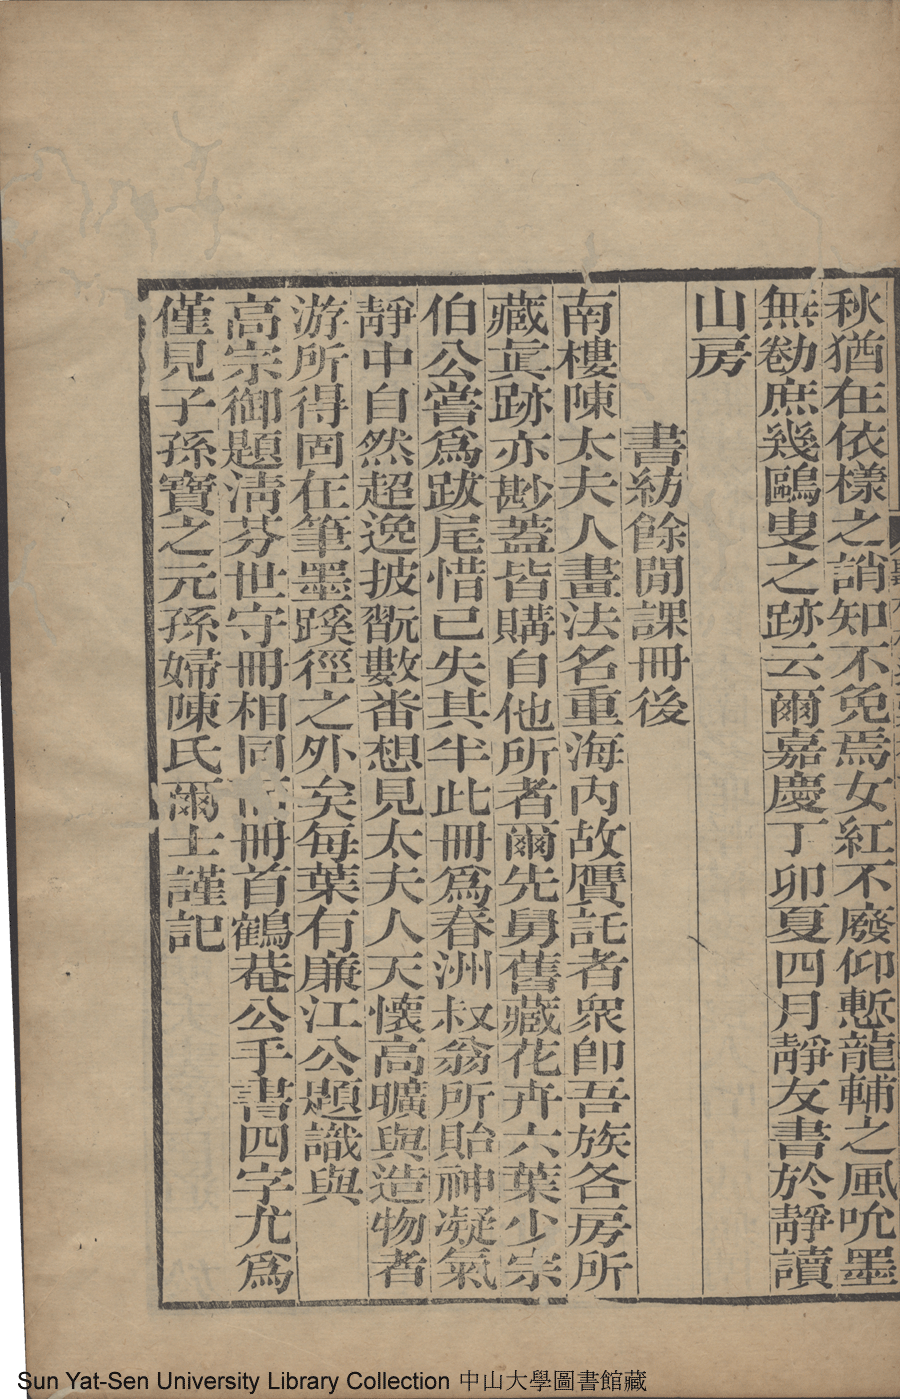 秋猶在依樣之誚知不免焉女紅不廢仰慙龍輔之風吮墨
無勌庶幾鷗叟之跡云爾嘉慶丁卯夏四月靜友書於靜讀
山房
書紡餘閒課冊後
南樓陳太夫人畫法名重海內故贋託者衆卽吾族各房所
藏眞跡亦尠蓋皆購自他所者爾先舅舊藏花卉六葉少宗
伯公嘗爲跋尾惜已失其半此冊爲春洲叔翁所貽神凝氣
靜中自然超逸披翫數番想見太夫人天懷高曠與造物者
游所得固在筆墨蹊徑之外矣每葉有廉江公題識與
高宗御題淸芬世守冊相同冊首鶴菴公手書四字尤爲
僅見子孫寶之元孫婦陳氏爾士謹記
Sun Yat-Sen University Library Collection 中山大學圖書館藏